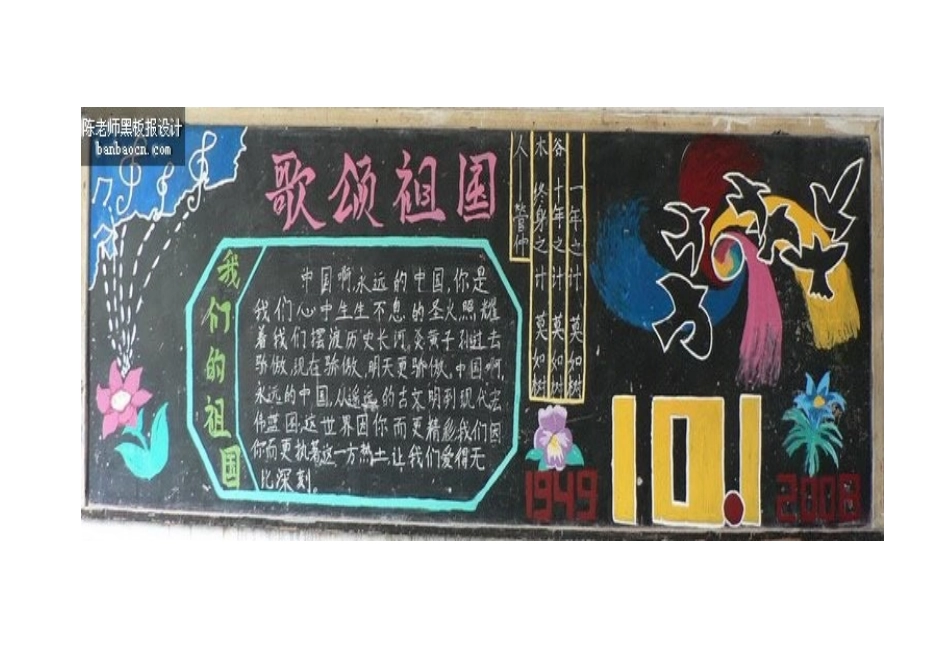 陈老师黑板报设计
banbaocn.com
歌颂祖国
我们的祖国
中国啊,永远的中国,你是
我们心中生生不息的圣火,照耀
着我们摆渡历史长河,炎黄子孙过去
骄傲,现在骄傲,明天更骄傲,中国啊,
永远的中国,从遥远的古文明到现代宏
伟蓝图,这世界因你而更精彩我们因
你而更执着这一方热土让我们爱得无
比深刻.
一年之计 莫如树
谷 十年之计 莫如树
木 终身之计 莫如树
人——管仲
1949
10.1
2008